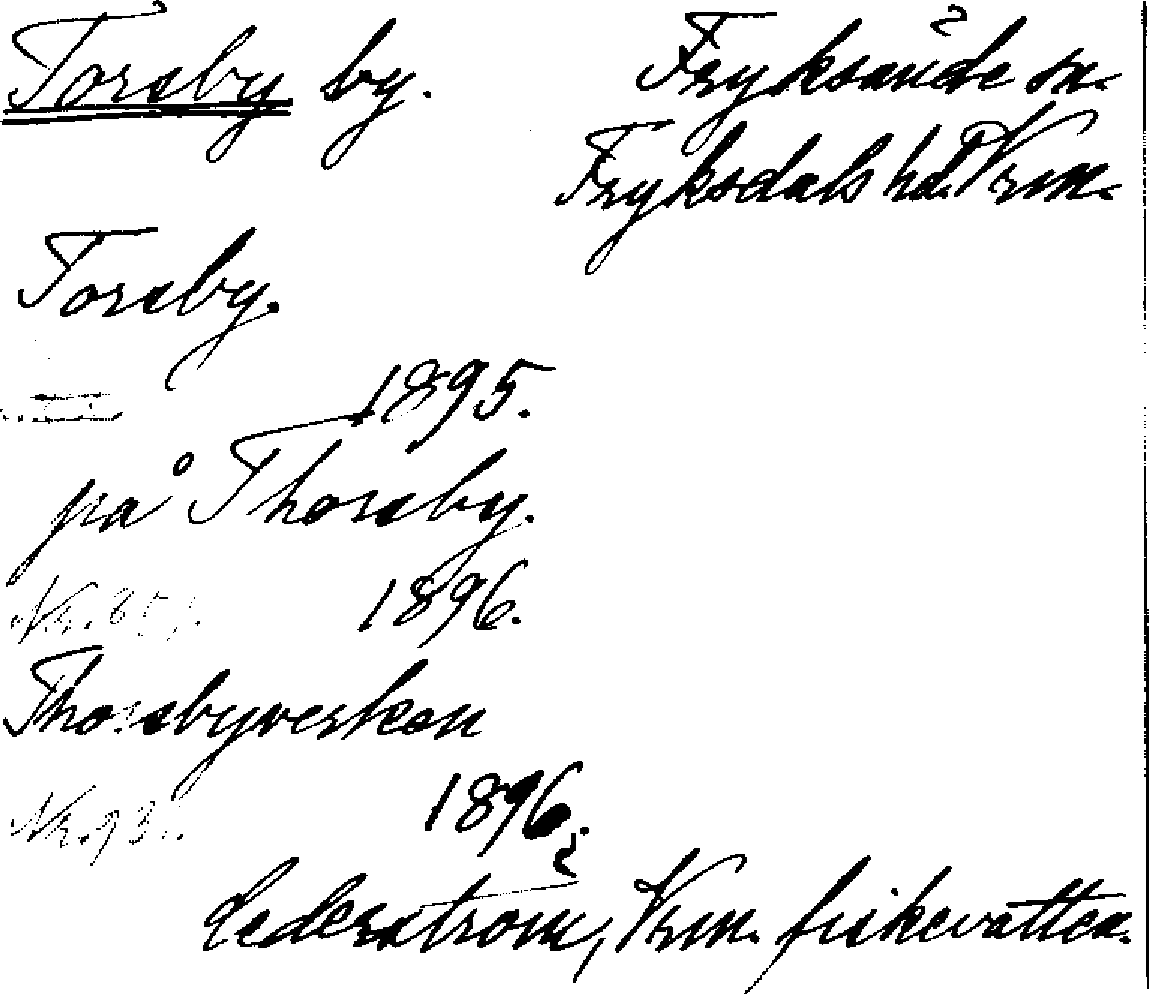 Torsby by. Fryksände sn.
Fryksdals hd. Vrm.
Torsby.
1895.
på Thorsby.
1896.
Thorsbyverken
Nr. 93. 1896.
Cederström, Vrm. fiskevatten.